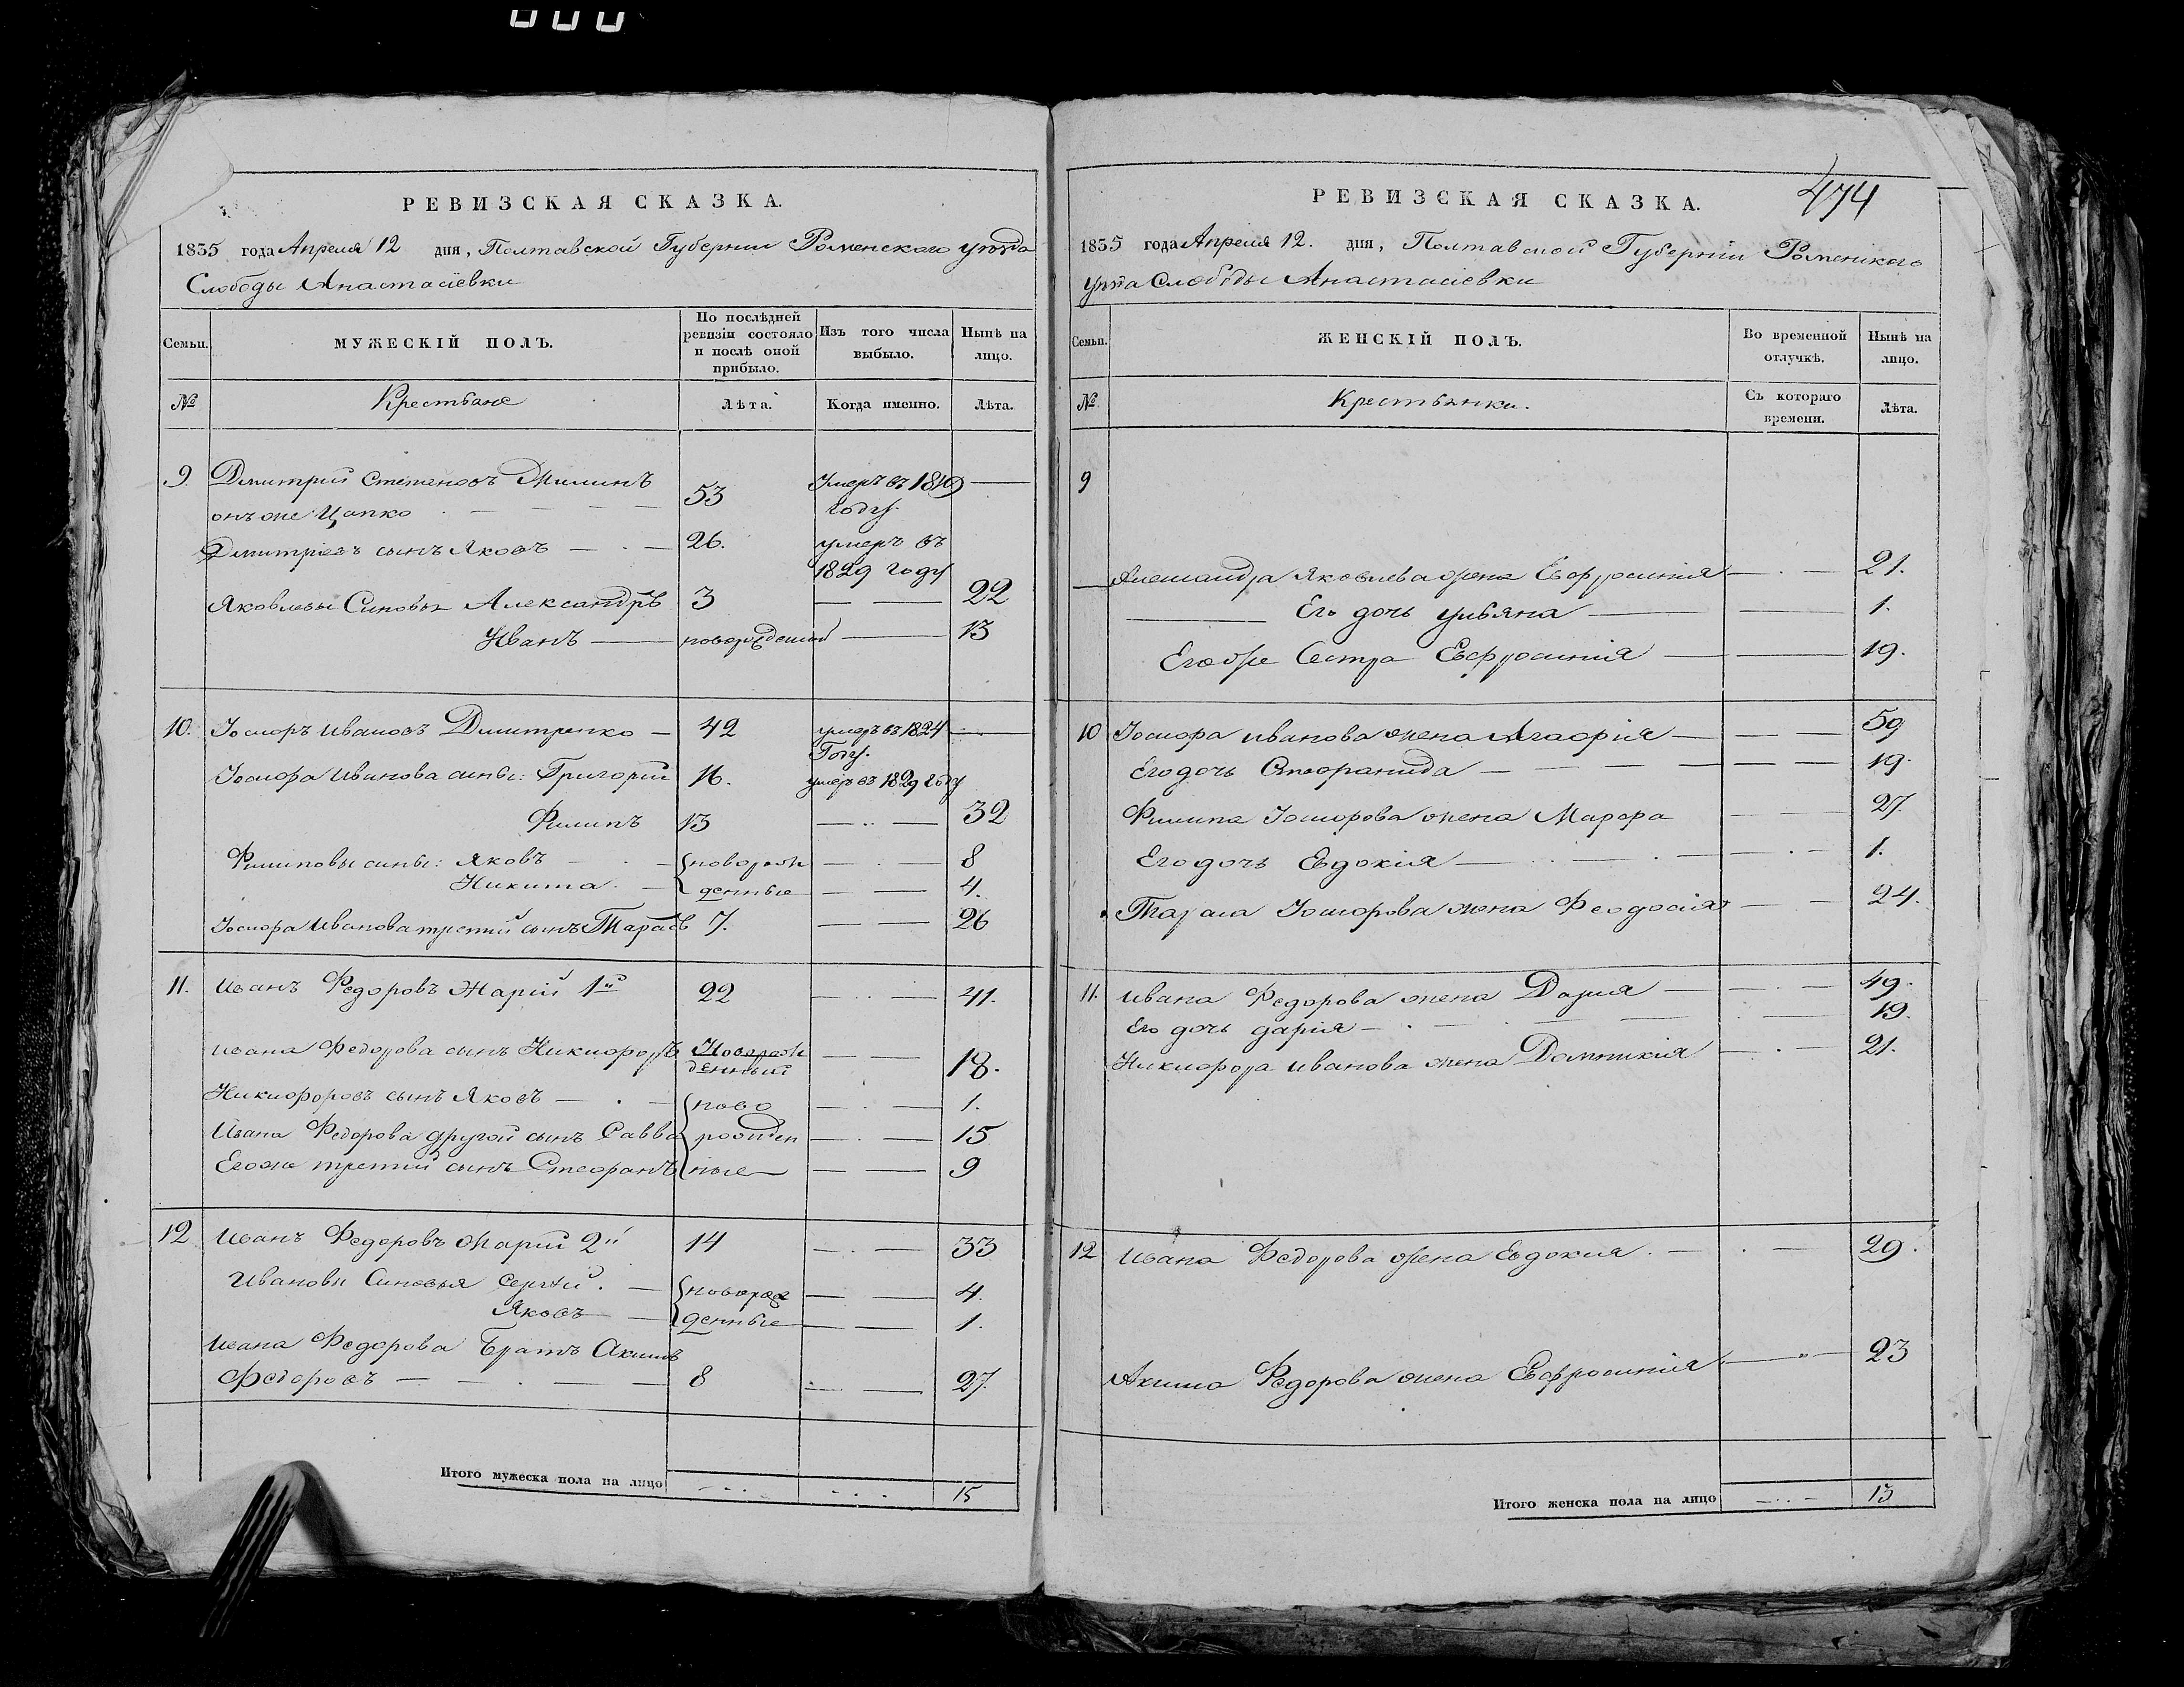 РЕВИЗСКАЯ СКАЗКА.
1835 года Апреля 12 дня, Полтавской Губернии Роменского уѣзда
Слободы Анастасіевки
Семьи. МУЖЕСКІЙ ПОЛЪ. По послѣдней ревизіи состояло и послѣ оной прибыло. Изъ того числа выбыло. Нынѣ на лицо.
№ Крестьяне Лѣта. Когда именно. Лѣта.
9 Дмитрій Степановъ Милинъ умеръ въ 1819 —
онъ же Цапко 53 году.
Дмитріевъ сынъ Яковъ — 26. умеръ въ
1829 году
Яковлевы Синовья Александръ 3 — — 22
Иванъ — новорожденный — 13
10. Іосифъ Ивановъ Дмитренко — 42 умеръ въ 1824 —
Году.
Іосифа Иванова сины: Григорій 16. умеръ въ 1829 году
Филипъ 13 — — 32
Филиповы сины: Яковъ — {новорож — 8
Никита. — {денные — — 4.
Іосифа Иванова третій сынъ Тарасъ 7. — — 26
11. Иванъ Федоровъ Жарій 1й 22 — — 41.
Ивана Федорова сынъ Никифоръ Новорож
денный — — 18.
Никифоровъ сынъ Яковъ — {ново — — 1.
Ивана Федорова другой сынъ Савва рожден — — 15
Его же третій сынъ Стефанъ {ные — — 9
12 Иванъ Федоровъ Жарій 2й 14 — — 33
Ивановы Синовья Сергій. — {новорож — — 4.
Яковъ — {денные — — 1.
Ивана Федорова Братъ Акимъ
Федоровъ — — 8 — — 27.
Итого мужеска пола на лицо 15
РЕВИЗСКАЯ СКАЗКА. 474
1835 года Апреля 12. дня, Полтавской Губерніи Роменского
уѣзда Слободы Анастасіевки
Семьи. ЖЕНСКІЙ ПОЛЪ. Во временной отлучкѣ. Нынѣ на лицо.
№ Крестьянки. Съ котораго времени. Лѣта.
9
Александра Яковлева жена Евфросинія — 21.
Его дочь Ульяна — — 1.
Его же Сестра Евфросинія — — 19.
10 Іосифа Иванова жена Агафія — — 59
Его дочь Стефанида — — 19.
Филипа Іосифова жена Марфа — — 27.
Его дочь Евдокія — — 1.
Тараса Іосифова жена Феодосія — — 24.
11. Ивана Федорова жена Дарія — — 49.
Его дочь Дарія — — 19.
Никифора Иванова жена Домникія — — 21.
12 Ивана Федорова жена Евдокія. — — 29.
Акима Федорова жена Евфросинія — — 23
Итого женска пола на лицо 13